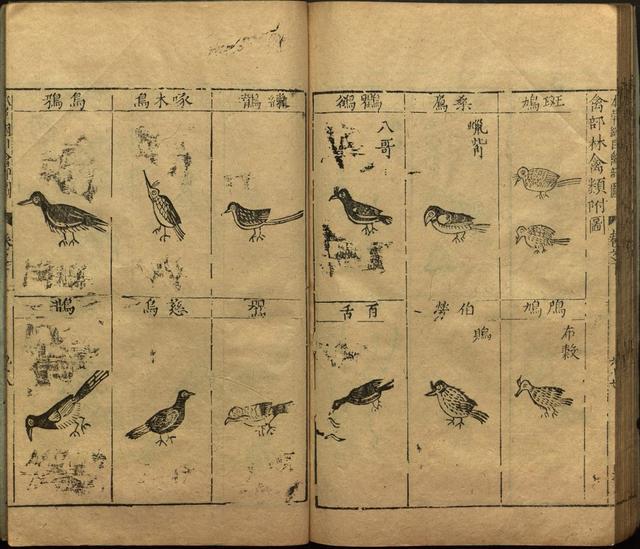 禽部林禽類附圖
斑鳩
桑鳸
蠟觜
鸜鵒
八哥
鳲鳩
布穀
伯勞
鵙
百舌
啄木鳥
烏鴉
慈烏
鵲